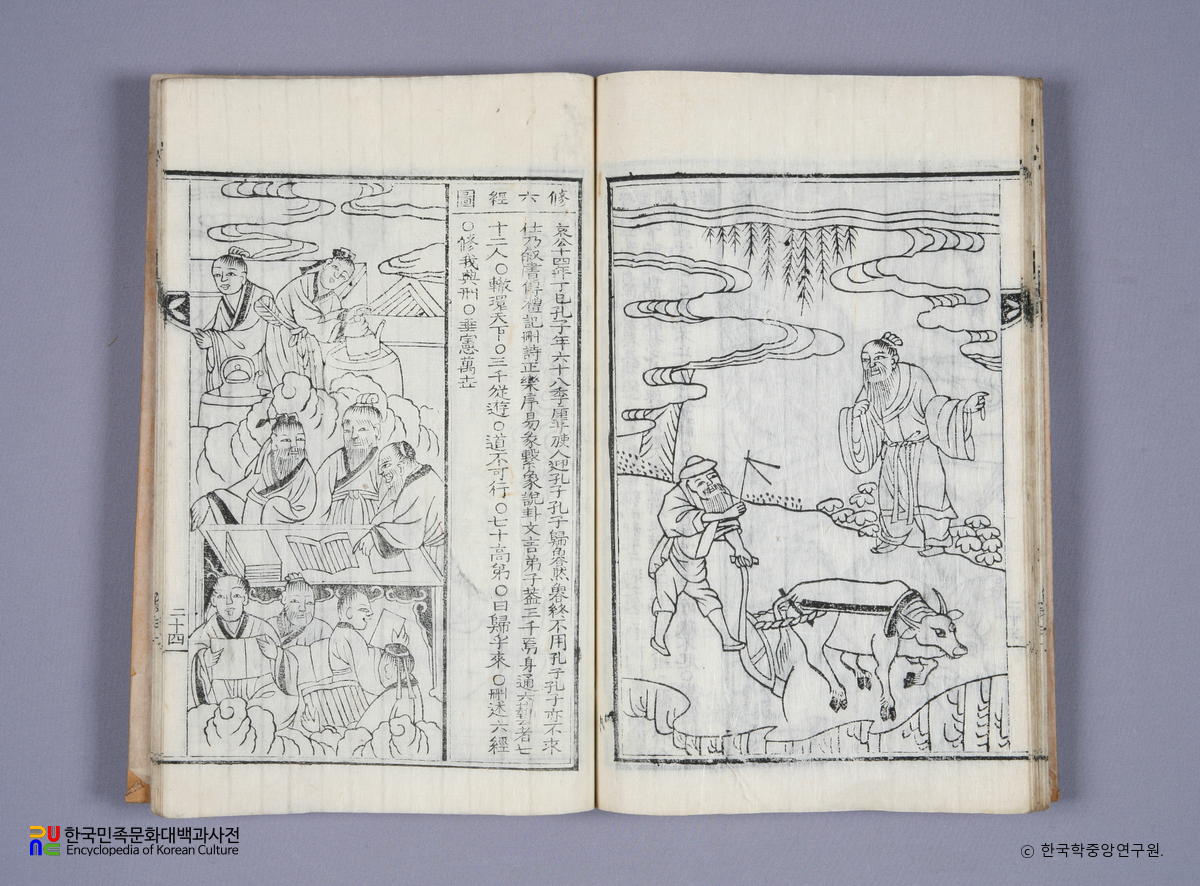 修六經圖
哀公十四年丁巳孔子年六十八季人迎孔子孔子歸魯然魯終不用孔子孔子亦不求
仕乃敍書傳禮記刪詩正樂序易彖繫象說卦文言弟子蓋三千焉身通六藝者七
十二人○轍環天下○三千從遊○道不可行○七十高弟○曰歸乎來○刪述六經
○修我典刑○垂憲萬世
二十四
한국민족문화대백과사전
Encyclopedia of Korean Culture
ⓒ 한국학중앙연구원.